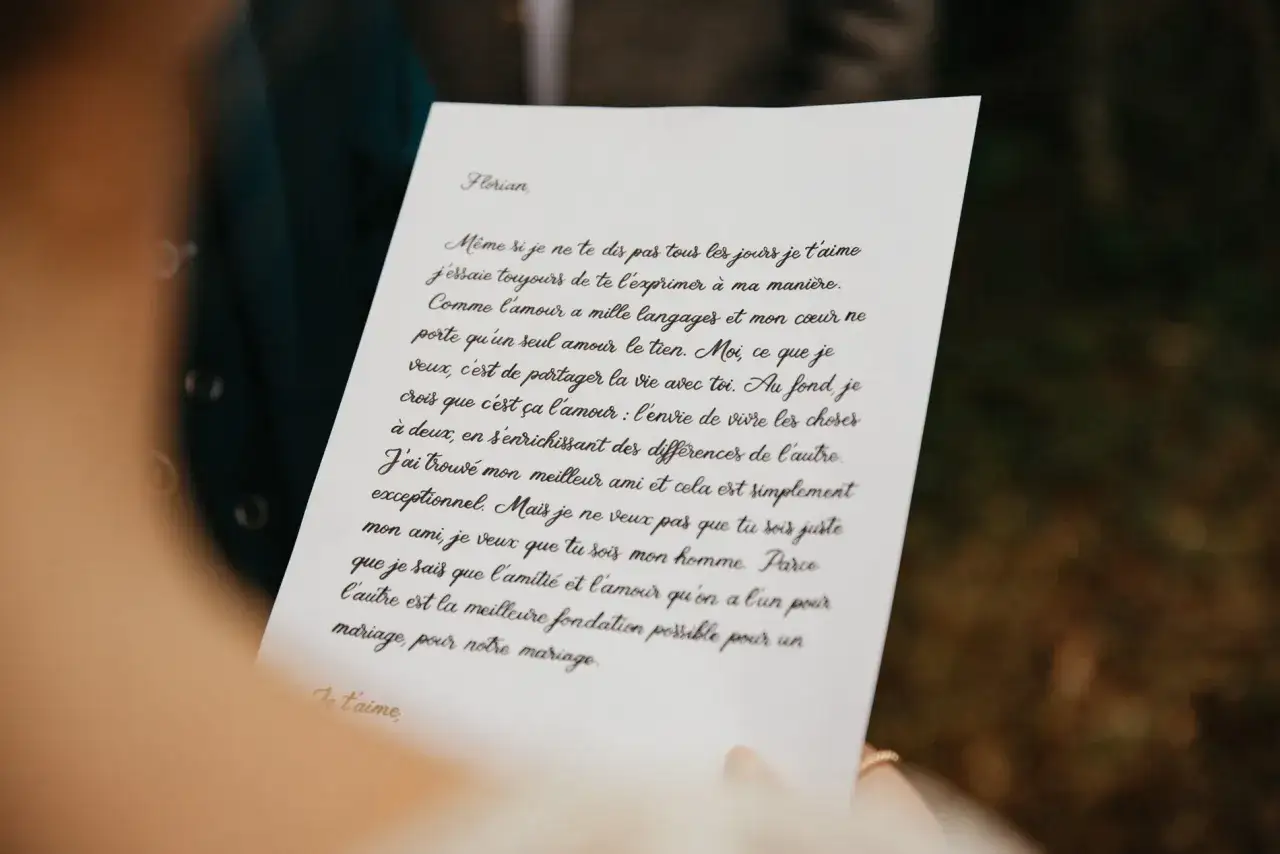 Florian,
Même si je ne te dis pas tous les jours je t'aime
j'essaie toujours de te l'exprimer à ma manière.
Comme l'amour a mille langages et mon cœur ne
porte qu'un seul amour le tien. Moi, ce que je
veux, c'est de partager la vie avec toi. Au fond, je
crois que c'est ça l'amour : l'envie de vivre les choses
à deux, en s'enrichissant des différences de l'autre.
J'ai trouvé mon meilleur ami et cela est simplement
exceptionnel. Mais je ne veux pas que tu sois juste
mon ami, je veux que tu sois mon homme. Parce
que je sais que l'amitié et l'amour qu'on a l'un pour
l'autre est la meilleure fondation possible pour un
mariage, pour notre mariage.
Je t'aime,